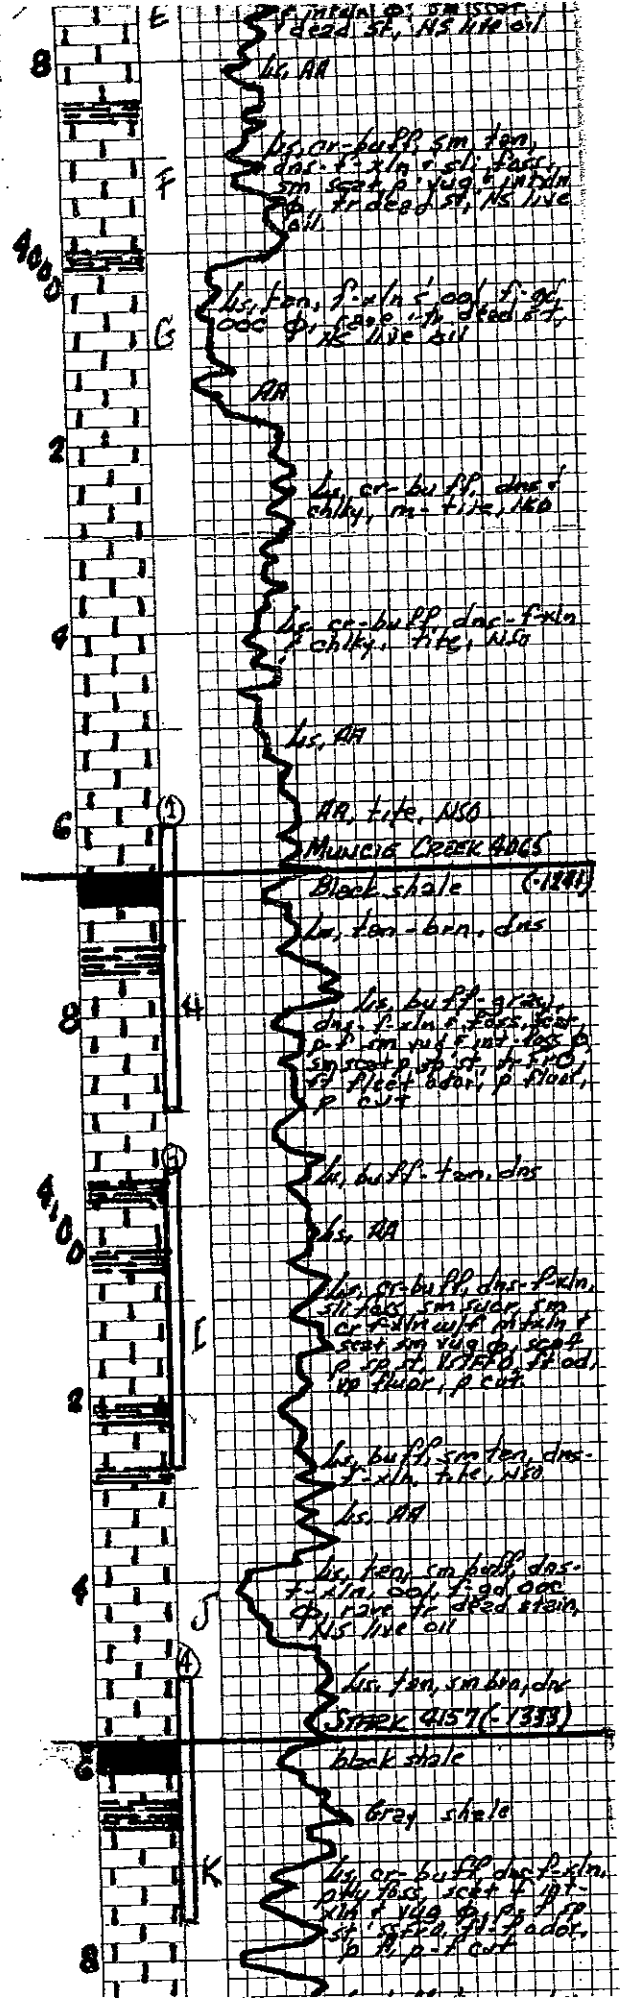 E
dead st, NS live oil
8
Ls, AA
Ls, cr-buff, sm tan,
dns-f-xln & sli foss,
sm scat p vug & intxln
F
φ, tr dead st, NS live
oil
4000
Ls, tan, f-xln & ool, f-gd
ooc φ, rare tr dead st,
NS live oil
G
AA
2
Ls, cr-buff, dns &
chlky, m-tite, NSO
4
Ls, cr-buff, dns-f-xln
& chlky, tite, NSO
Ls, AA
1
AA, tite, NSO
6
MUNCIE CREEK 4065
Black shale (-1241)
Lm, tan-brn, dns
Ls, buff-gray,
H
8
dns-f-xln & foss, scat
p-f sm vug & int-foss φ,
sm scat p sp st, tr SFO,
ft fleet odor, p fluor,
p cut
Ls, buff-tan, dns
4100
Ls, AA
Ls, cr-buff, dns-f-xln,
sli foss, sm sucr, sm
I
cr f-xln w/f intxln &
scat sm vug φ, scat
p sp st, ft od,
2
vp fluor, p cut
Ls, buff, sm tan, dns-
f-xln, tite, NSO
Ls, AA
4
Ls, tan, sm buff, dns-
f-xln, ool, f-gd ooc
J
φ, rare tr dead stain,
NS live oil
4
Ls, tan, sm brn, dns
STARK 4157 (-1333)
6
black shale
Gray shale
K
Ls, cr-buff dns-f-xln,
foss, scat f int-
xln & vug φ, p-f sp
st, odor,
8
p-f cut